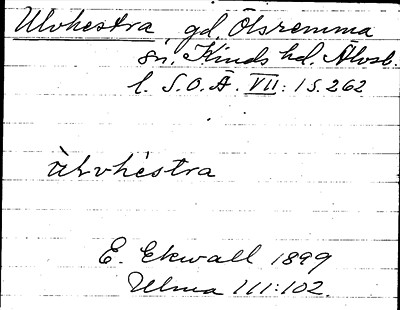 Ulvhestra, gd, Ölsremma
sn. Kinds hd. Älvsb.
l. S.O.Ä. VII: 1 s. 262
E. Ekwall 1899
Ulma III:102.